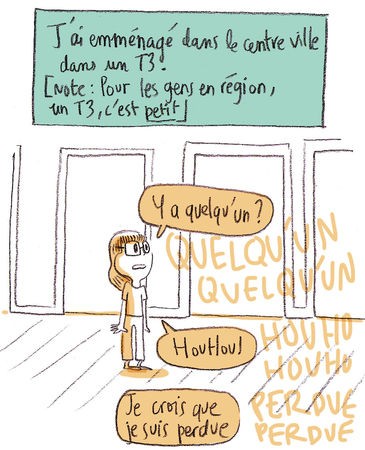 J'ai emménagé dans le centre ville
dans un T3!
[Note: Pour les gens en région,
un T3, c'est petit]
Y a quelqu'un?
QUELQU'UN
QUELQU'UN
HouHou!
HOUHO
HOUHO
Je crois que
je suis perdue
PERDUE
PERDUE